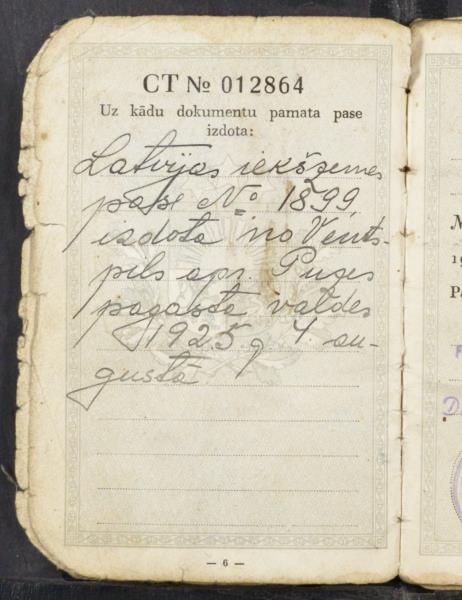 CT № 012864
Uz kādu dokumentu pamata pase
izdota:
Latvijas iekšzemes
pase № 1899,
izdota no Vents-
pils apr. Puzes
pagasta valdes
1925 g. 4. au-
gustā
— 6 —